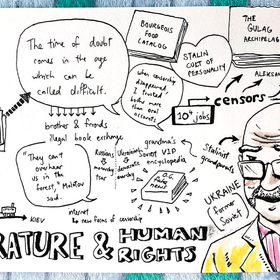 The time of doubt
comes in the age
which can be
called difficult.
BOURGEOIS
FOOD
CATALOG
THE
GULAG
ARCHIPELAG
STALIN
CULT OF
PERSONALITY
ALEKSAN
when censorship
disappeared,
I trusted
books more
than oral
accounts.
10+ jobs
censors
brother & friends
illegal book exchange
"They can't
overhear
us in
the
forest," Molotov
said.
Russian
Ukrainian
grandma's
Soviet VIP
encyclopedia
Stalinist
grandparents
UKRAINE
former
Soviet
KIEV
internet
new forms of censorship
RATURE & HUMAN
RIGHTS